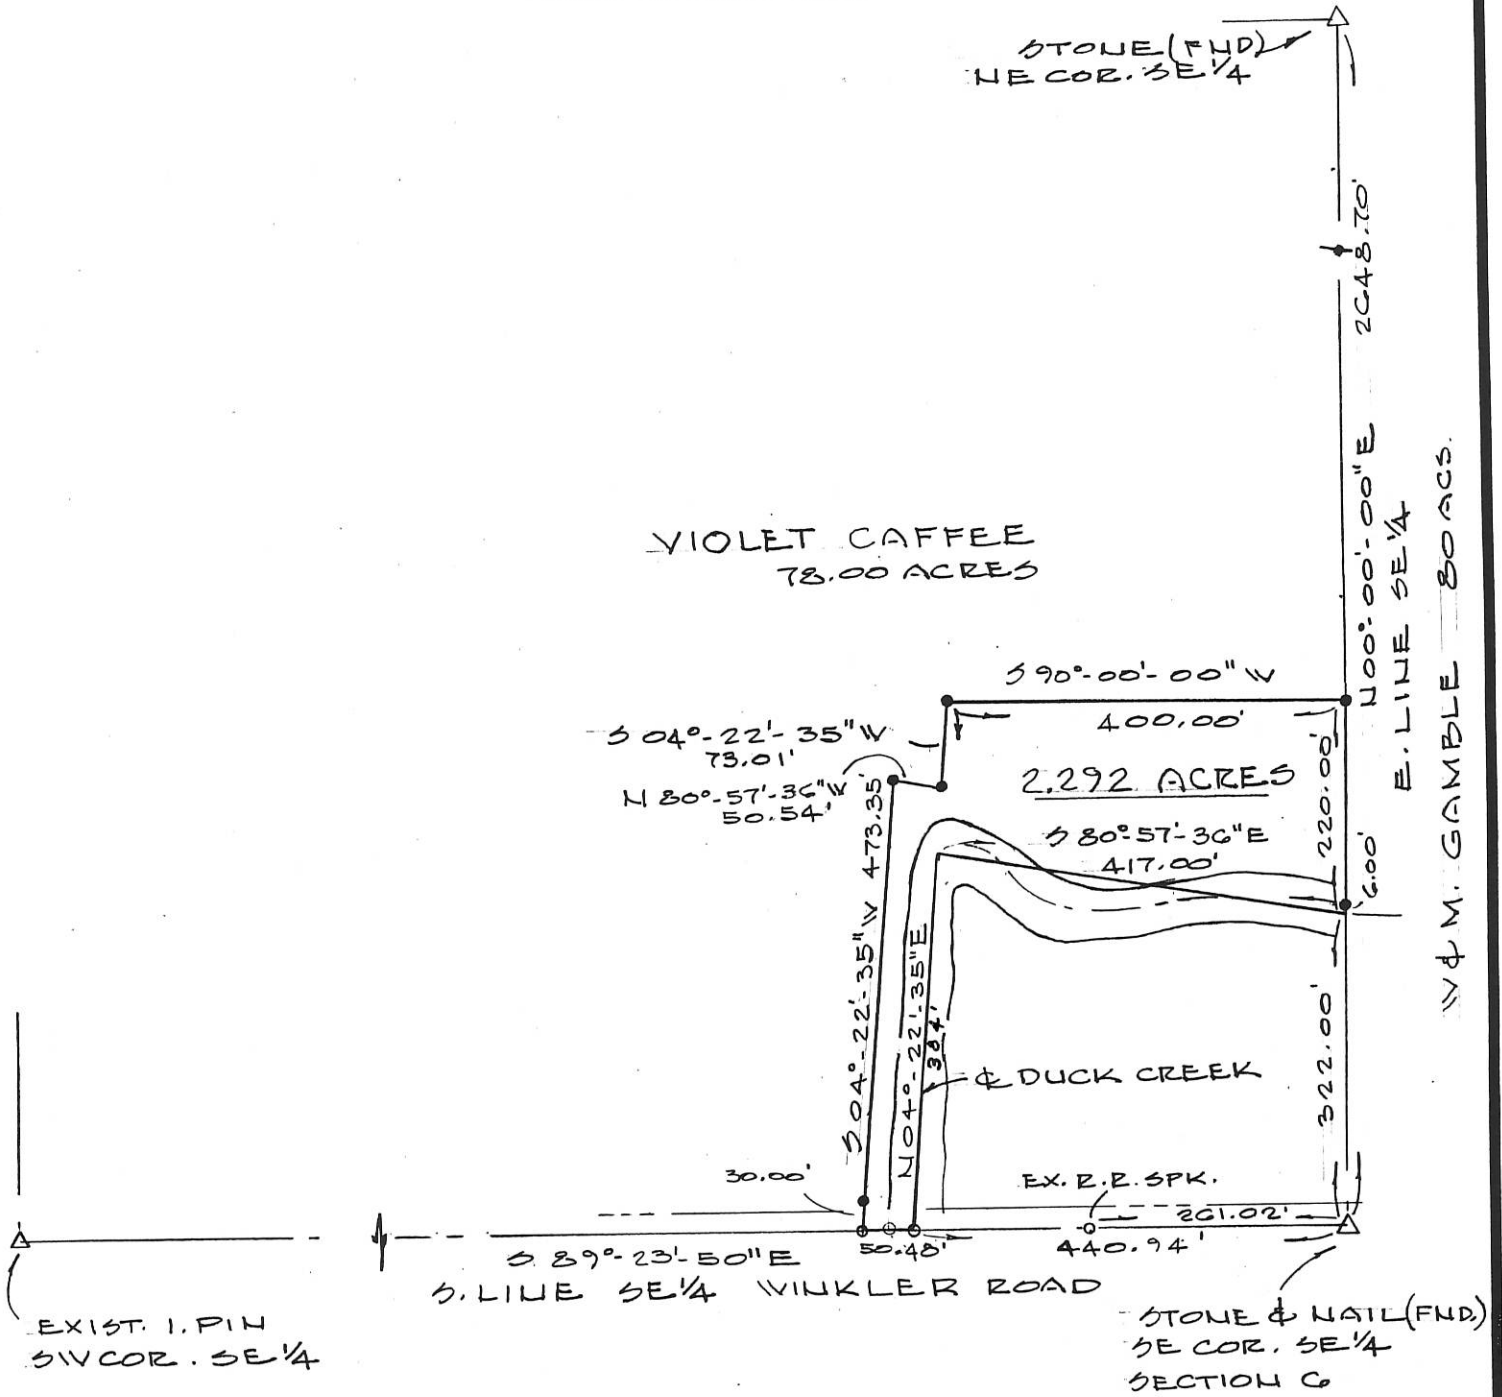 STONE (FND)
NE COR. SE 1/4
2648.70'
N00°-00'-00"E
E. LINE SE 1/4
W & M. GAMBLE 80 ACS.
VIOLET CAFFEE
78.00 ACRES
S 90°-00'-00" W
400.00'
S 04°-22'-35" W
73.01'
N 80°-57'-36" W
50.54'
2.292 ACRES
220.00'
S 80°-57'-36" E
417.00'
6.00'
S 04°-22'-35" W 473.35'
N 04°-22'-35" E
384'
℄ DUCK CREEK
322.00'
30.00'
EX. R.R. SPK.
261.02'
S 89°-23'-50" E
50.48'
440.94'
S. LINE SE 1/4 WINKLER ROAD
EXIST. I. PIN
SW COR. SE 1/4
STONE & NAIL (FND.)
SE COR. SE 1/4
SECTION 6